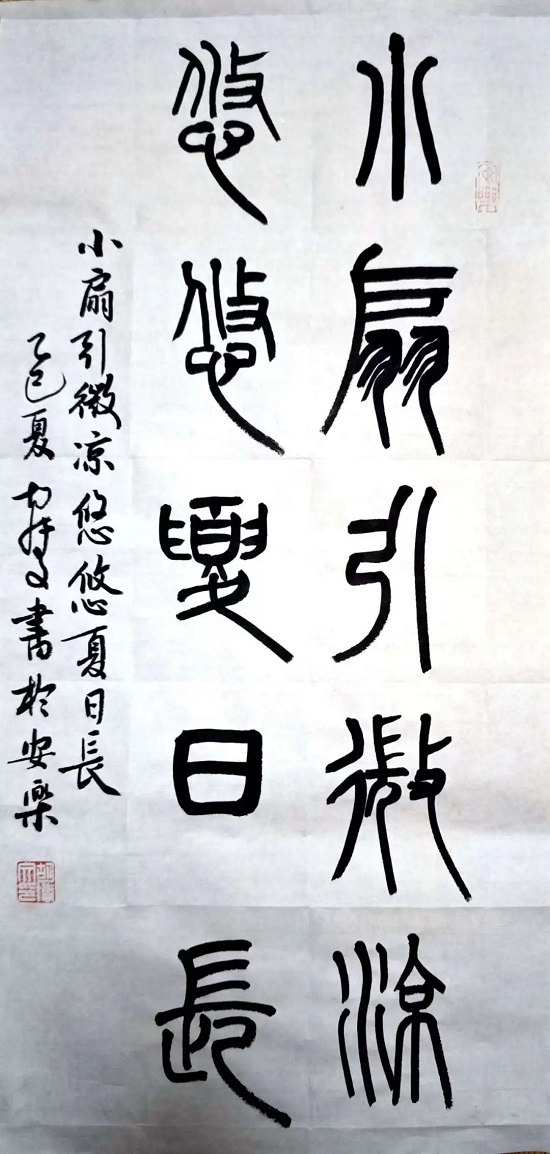 小扇引微涼
悠悠夏日長
小扇引微凉悠悠夏日長
乙巳夏 书於安樂